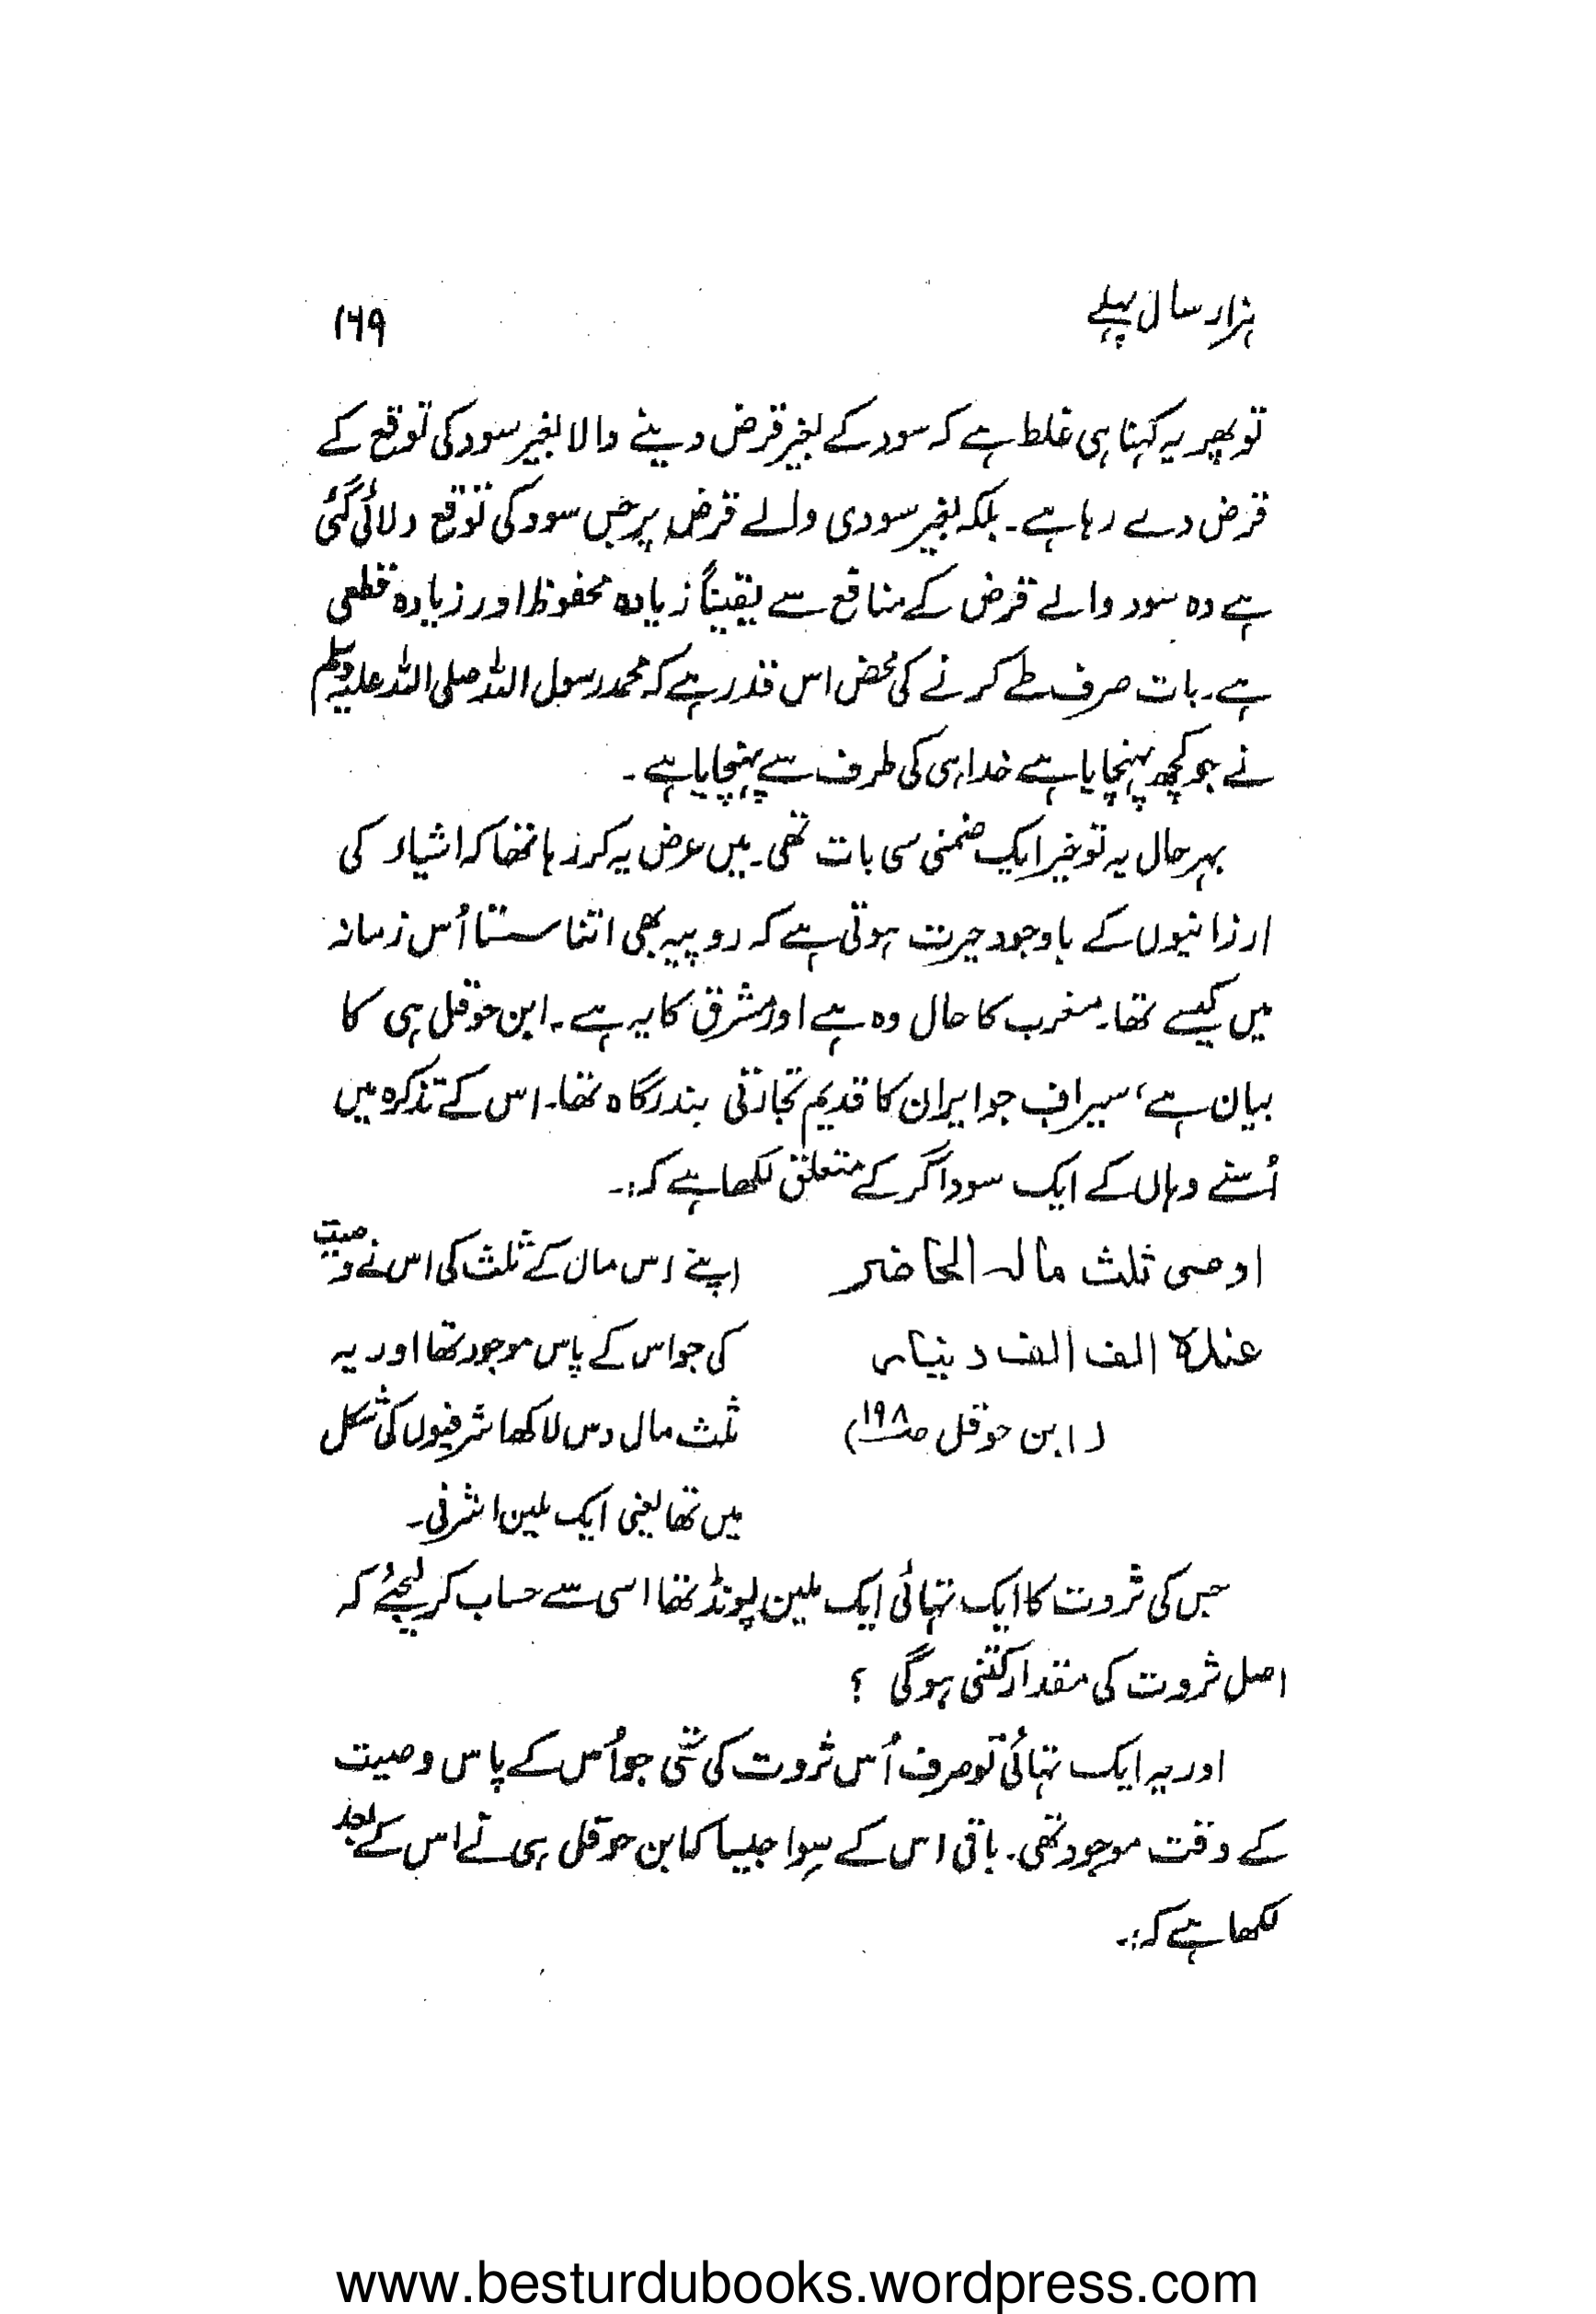 ہزار سال پہلے
۱۶۹
تو پھر یہ کہنا ہی غلط ہے کہ سود کے بغیر قرض دینے والا بغیر سود کی توقع کے
قرض دے رہا ہے۔ بلکہ بغیر سودی والے قرض پر جس سود کی توقع دلائی گئی
ہے وہ سود والے قرض کے منافع سے یقیناً زیادہ محفوظ اور زیادہ قطعی
ہے۔ بات صرف طے کرنے کی محض اس قدر ہے کہ محمد رسول اللہ صلی اللہ علیہ وسلم
نے جو کچھ پہنچایا ہے خدا ہی کی طرف سے پہنچایا ہے۔
بہر حال یہ تو خیر ایک ضمنی سی بات تھی۔ میں عرض یہ کر رہا تھا کہ اشیاء کی
ارزانیوں کے باوجود حیرت ہوتی ہے کہ روپیہ بھی اتنا سستا اُس زمانہ
میں کیسے تھا۔ مغرب کا حال وہ ہے اور مشرق کا یہ ہے۔ ابن حوقل ہی کا
بیان ہے، سیراف جو ایران کا قدیم تجارتی بندرگاہ تھا۔ اس کے تذکرہ میں
اُسنے وہاں کے ایک سوداگر کے متعلق لکھا ہے کہ:۔
اوصی ثلث مالہ الحاضر
عندہ الف الف دینار
(ابن حوقل صـ۱۹۸)
اپنے اس مال کے ثلث کی اس نے وصیت
کی جو اس کے پاس موجود تھا اور یہ
ثلث مال دس لاکھ اشرفیوں کی شکل
میں تھا یعنی ایک ملین اشرفی۔
جس کی ثروت کا ایک تہائی ایک ملین پونڈ تھا اسی سے حساب کر لیجئے کہ
اصل ثروت کی مقدار کتنی ہوگی ؟
اور یہ ایک تہائی تو صرف اُس ثروت کی تھی جو اُس کے پاس وصیت
کے وقت موجود تھی۔ باقی اس کے سِوا جیسا کہ ابن حوقل ہی نے اس کے بعد
لکھا ہے کہ:۔
www.besturdubooks.wordpress.com